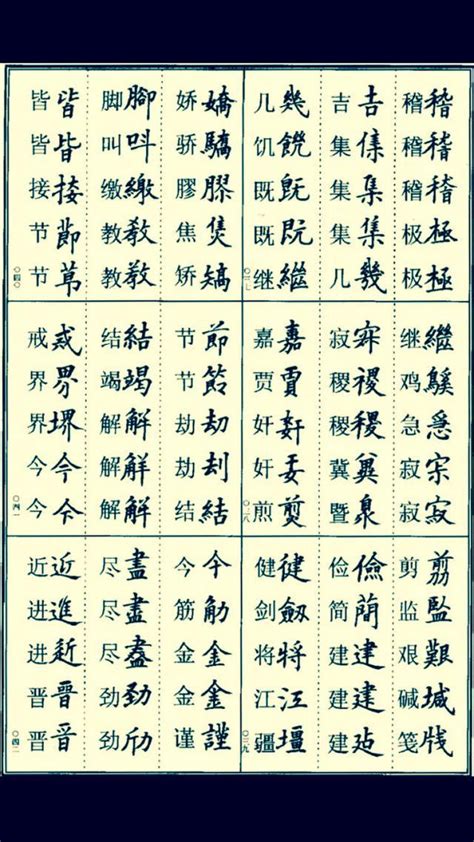 稽稽稽稽稽稽极極极極
吉吉集集集集集几幾
几幾饥饑既既既既继繼
〇三七
继繼鸡急急寂寂寂
寂稷稷稷稷冀冀暨臮
嘉嘉贾賈奸奸奸煎煎
〇三八
剪剪监監艰艱碱堿笺牋
俭儉简簡建建建建建
健健剑劔将将江江疆壃
〇三九
娇嬌骄驕膠膠焦焦矫矯
脚腳叫叫缴繳教教教教
皆皆皆皆接接节節节
〇四〇
节節节莭劫劫劫刦结結
结結竭竭解解解解解解
戒戒界界界堺今今今今
〇四一
今今筋筋金金金金谨謹
尽盡尽盡尽盡劲勁劲
近近进進进晋晉晋晋
〇四二